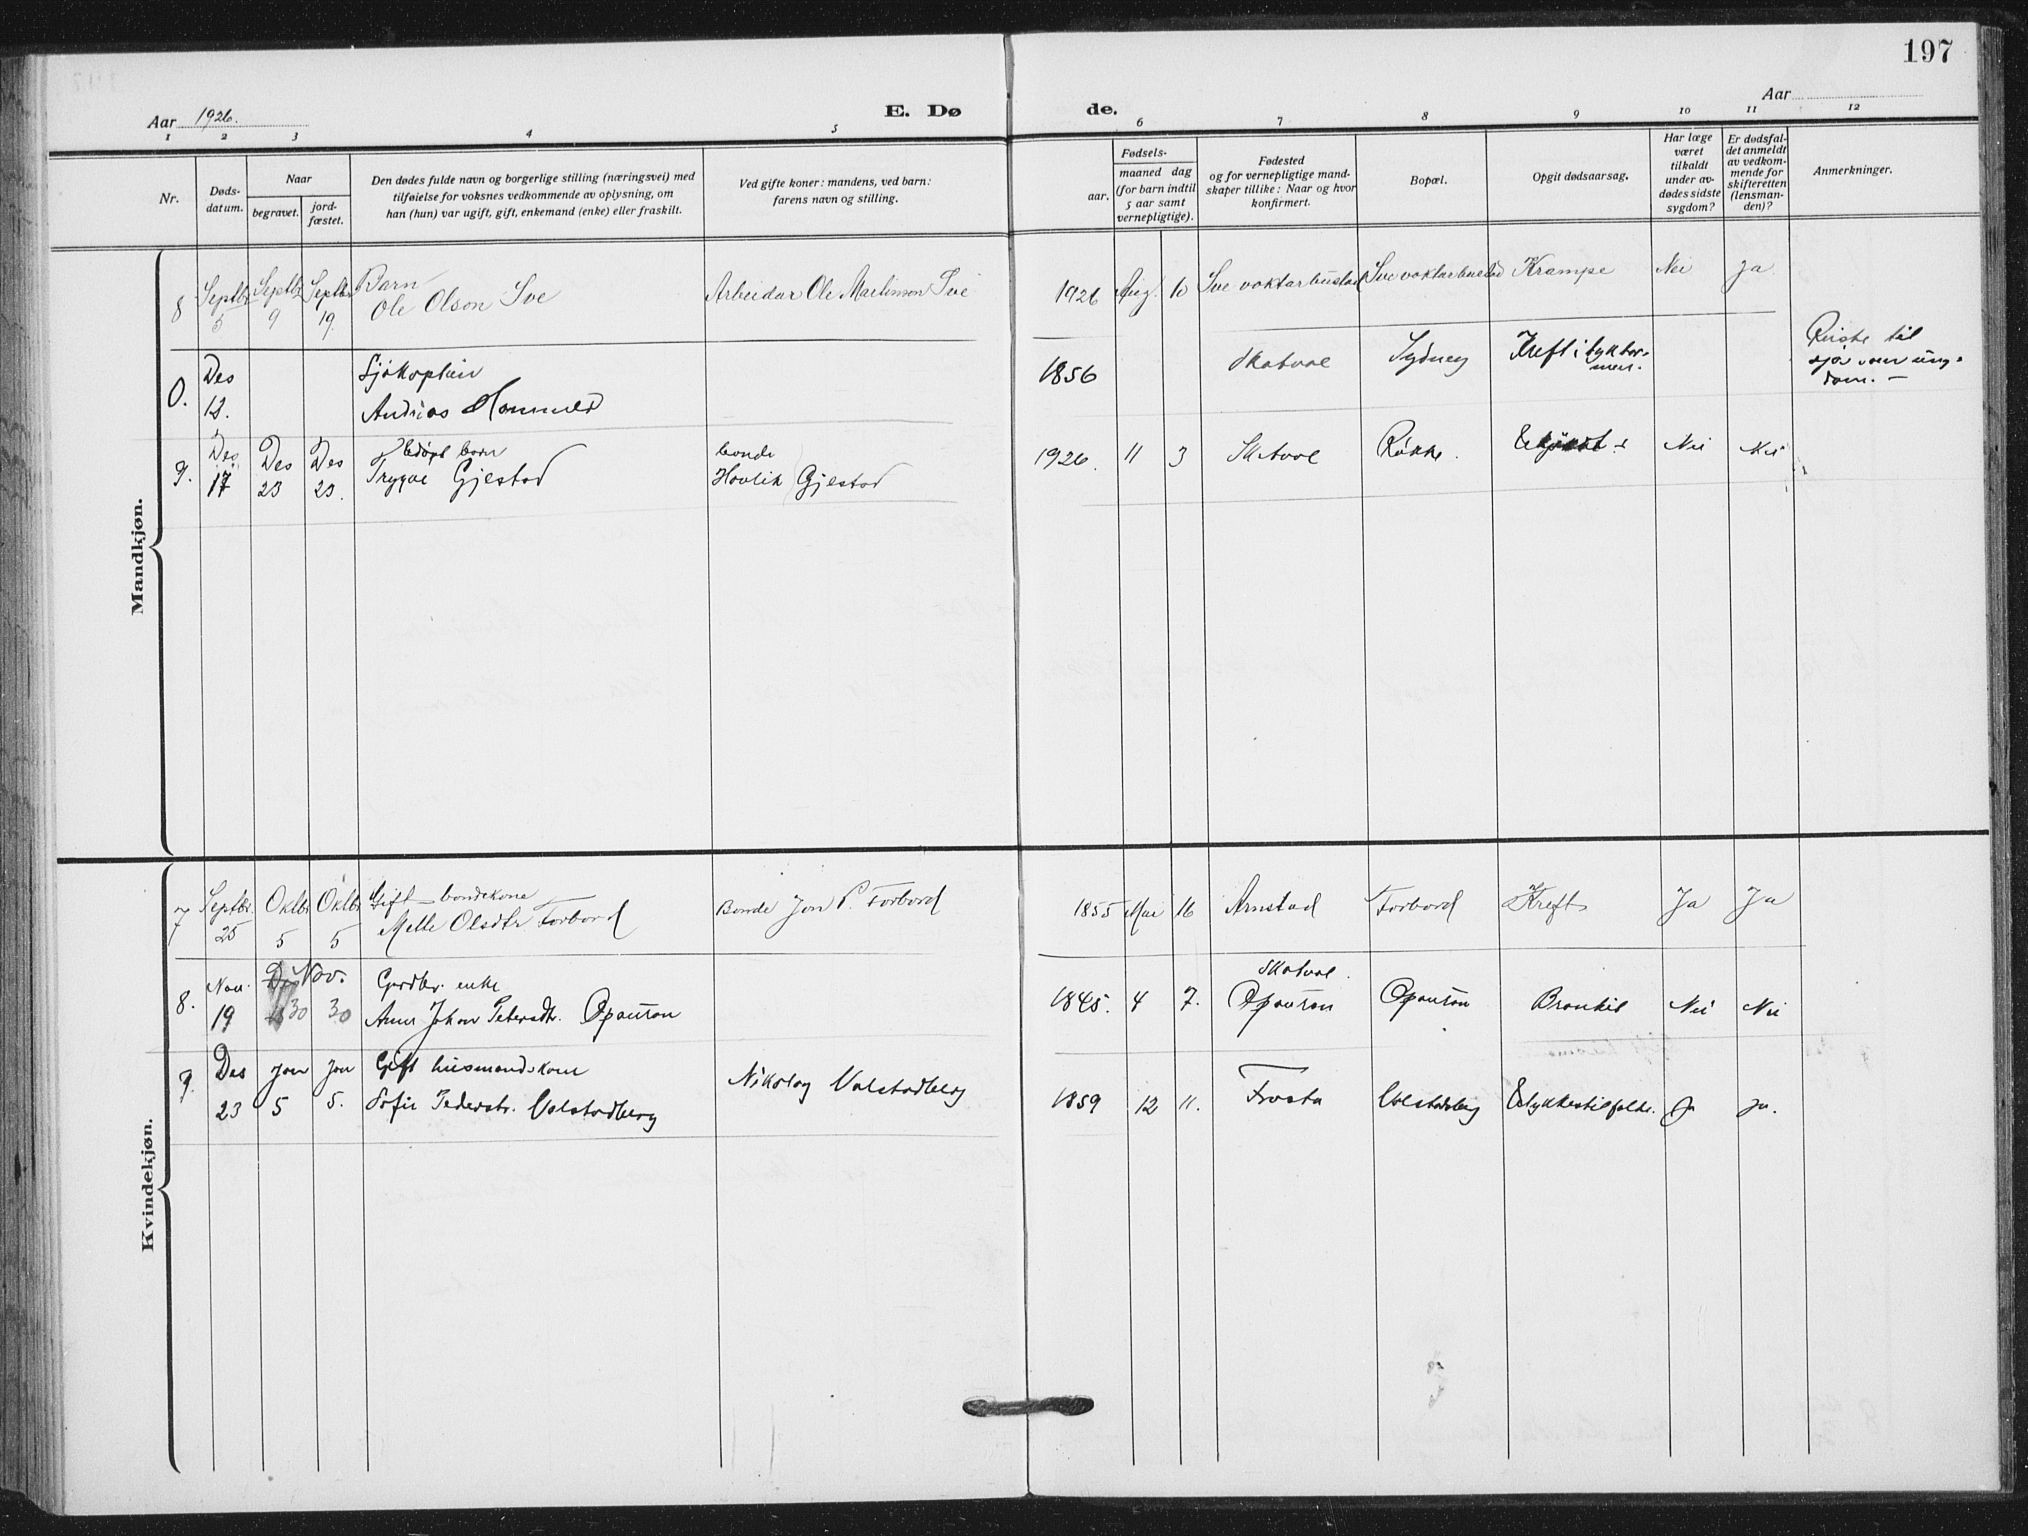 197
Aar 1926.
E. Dø
de.
Aar
1 2 3 4 5 6 7 8 9 10 11 12
Nr.
Døds-
datum.
Naar
begravet.
jord-
fæstet.
Den dødes fulde navn og borgerlige stilling (næringsvei) med
tilføielse for voksnes vedkommende av oplysning, om
han (hun) var ugift, gift, enkemand (enke) eller fraskilt.
Ved gifte koner: mandens, ved barn:
farens navn og stilling.
Fødsels-
aar.
maaned dag
(for barn indtil
5 aar samt
vernepligtige).
Fødested
og for vernepligtige mand-
skaper tillike: Naar og hvor
konfirmert.
Bopæl.
Opgit dødsaarsag.
Har læge
været
tilkaldt
under av-
dødes sidste
sygdom?
Er dødsfal-
det anmeldt
av vedkom-
mende for
skifteretten
(lensman-
den)?
Anmerkninger.
Mandkjøn.
8 Septbr 5 Septbr 9 Septbr 19.
Barn
Ole Olson Sve
Arbeidar Ole Martinson Sve
1926 Aug. 10 Sve voktarbustad Sve voktarbustad Krampe Nei ja
0. Des
Sjökaptein
Andreas
1856 Skatval Sydney Kreft i tyktar-
men.
Reiste til
sjøs som ung-
dom. -
9. Des 17 Des 23 Des 23.
Trygve Gjestad
bonde
Gjestad
1926. 11 3 Skatval Røkke. Nei Nei
Kvindekjøn.
7 Septbr. 25 Oktbr 5 Oktbr 5
Gift bondekone
Olsdtr Forbord
Bonde Jon P. Forbord
1855 Mai 16 Arnstad Forbord Kreft Ja Ja
8. Nov. 19 Nov. 30 30
Gardbr. enke
Petersdtr.
1845. 4 7. Skatval. Nei Nei
9. Des 23 Jan 5 Jan 5.
Gift husmandskone
Sofie Pedersdtr. Valstadberg
Nikolay Valstadberg
1859 12 11. Frosta Valstadberg Ja ja.